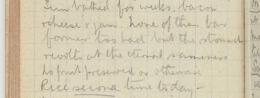 Sun bathed for weeks, bacon
cheese & jam. None of them bar
former too bad but the stomach
revolts at the eternal sameness
No fruit preserved or otherwise
Rice second time to-day -